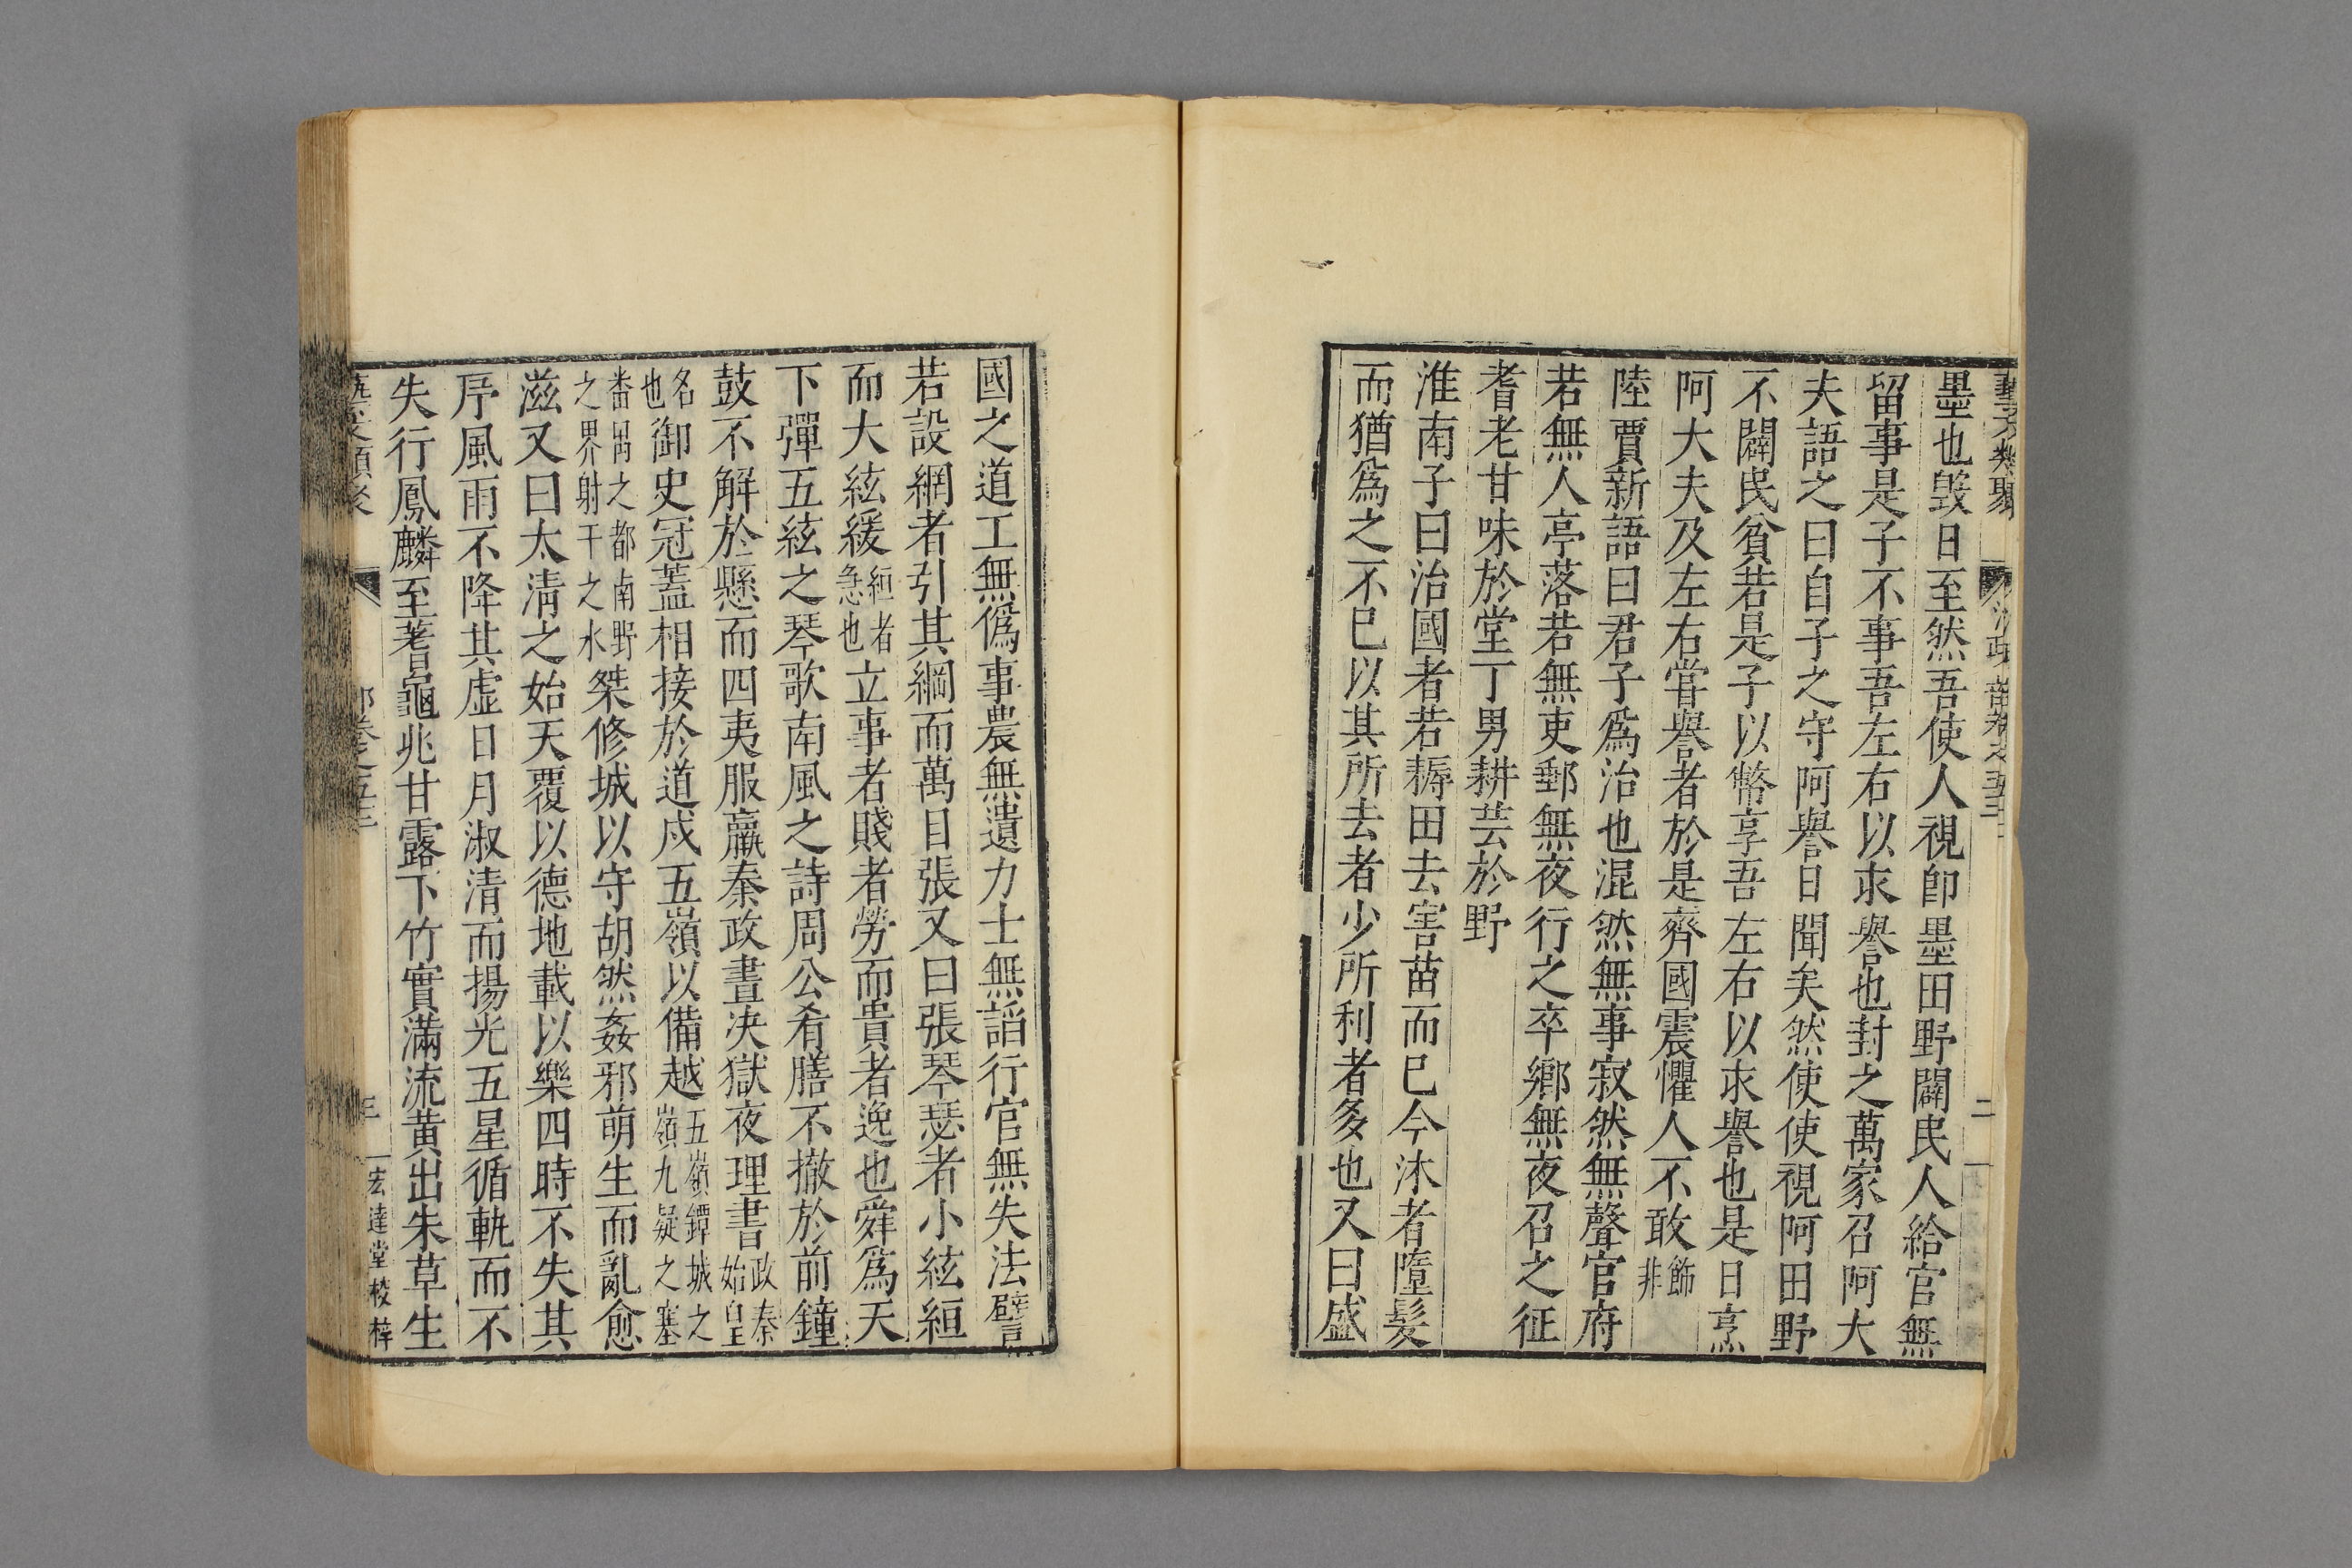 藝文類聚 治政部卷之五十二 二
墨也毀日至然吾使人視卽墨田野闢民人給官無
留事是子不事吾左右以求譽也封之萬家召阿大
夫語之曰自子之守阿譽日聞矣然使使視阿田野
不闢民貧苦是子以幣享吾左右以求譽也是日烹
阿大夫及左右嘗譽者於是齊國震懼人不敢飾非
陸賈新語曰君子爲治也混然無事寂然無聲官府
若無人亭落若無吏郵無夜行之卒鄉無夜召之征
耆老甘味於堂丁男耕芸於野
淮南子曰治國者若耨田去害苗而已今沐者墮髮
而猶爲之不已以其所去者少所利者多也又曰盛
國之道工無僞事農無遺力士無謟行官無失法譬
若設網者引其綱而萬目張又曰張琴瑟者小絃絙
而大絃緩絙者急也立事者賤者勞而貴者逸也舜爲天
下彈五絃之琴歌南風之詩周公肴膳不撤於前鐘
鼓不解於懸而四夷服羸秦政晝决獄夜理書政秦始皇
名也御史冠蓋相接於道戍五嶺以備越五嶺鐔城之嶺九疑之塞
番禺之都南野之界射干之水桀修城以守胡然姦邪萌生而亂愈
滋又曰太清之始天覆以德地載以樂四時不失其
序風雨不降其虛日月淑清而揚光五星循軌而不
失行鳳麟至蓍龜兆甘露下竹實滿流黄出朱草生
部卷之五十二 三 宏達堂校梓